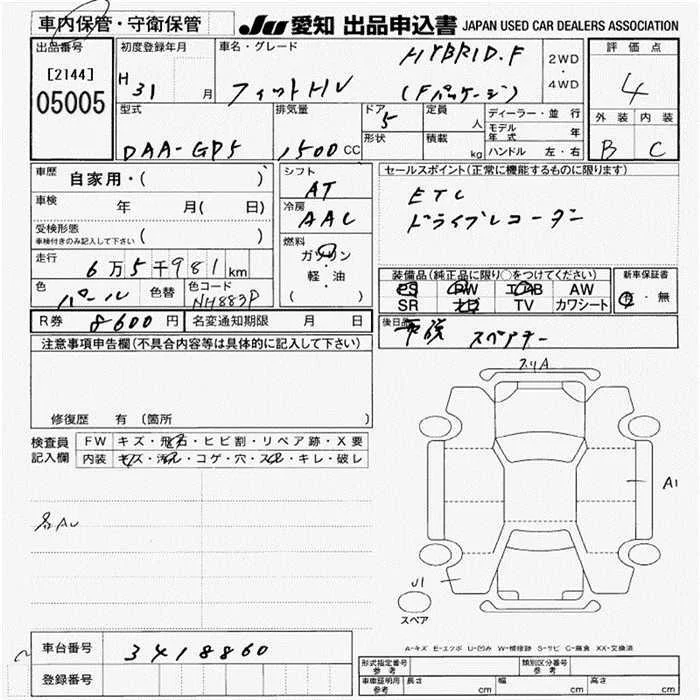 車内保管・守衛保管 JU 愛知 出品申込書 JAPAN USED CAR DEALERS ASSOCIATION
出品番号 初度登録年月 車名・グレード HYBRID.F 2WD・4WD 評価点
[2144] H 31 月 フィットHV (Fパッケージ) 4
05005 型式 排気量 ドア 5 定員 人 ディーラー・並行 外装 内装
DAA-GP5 1500 CC 形状 積載 kg モデル年式 年 B C
ハンドル 左・右
車歴 自家用・( ) シフト AT セールスポイント(正常に機能するものに限ります)
車検 年 月( 日) 冷房 AAC ETC
受検形態 ( ) ドライブレコーダー
車検付きのみ記入して下さい
走行 6万5千981km 燃料 ガソリン・軽・油 ( )
色 パール 色替 色コード NH883P
装備品(純正品に限り○をつけてください) 新車保証書
PS PW エアB AW 有・無
SR ナビ TV カワシート
R券 8600円 名変通知期限 月 日 後日品 スペアキー
注意事項申告欄(不具合内容等は具体的に記入して下さい)
修復歴 有 (箇所
検査員記入欄 FW キズ・飛石・ヒビ割・リペア跡・X要
内装 キズ・汚れ・コゲ・穴・スレ・キレ・破レ
A1
U1
スペア
A-キズ E-エクボ U-凹み W-補修跡 S-サビ C-腐食 XX-交換済
車台番号 3418860
登録番号
形式指定番号 参考 類別区分番号 参考
車車証明用 参考 長さ cm 幅 cm 高さ cm